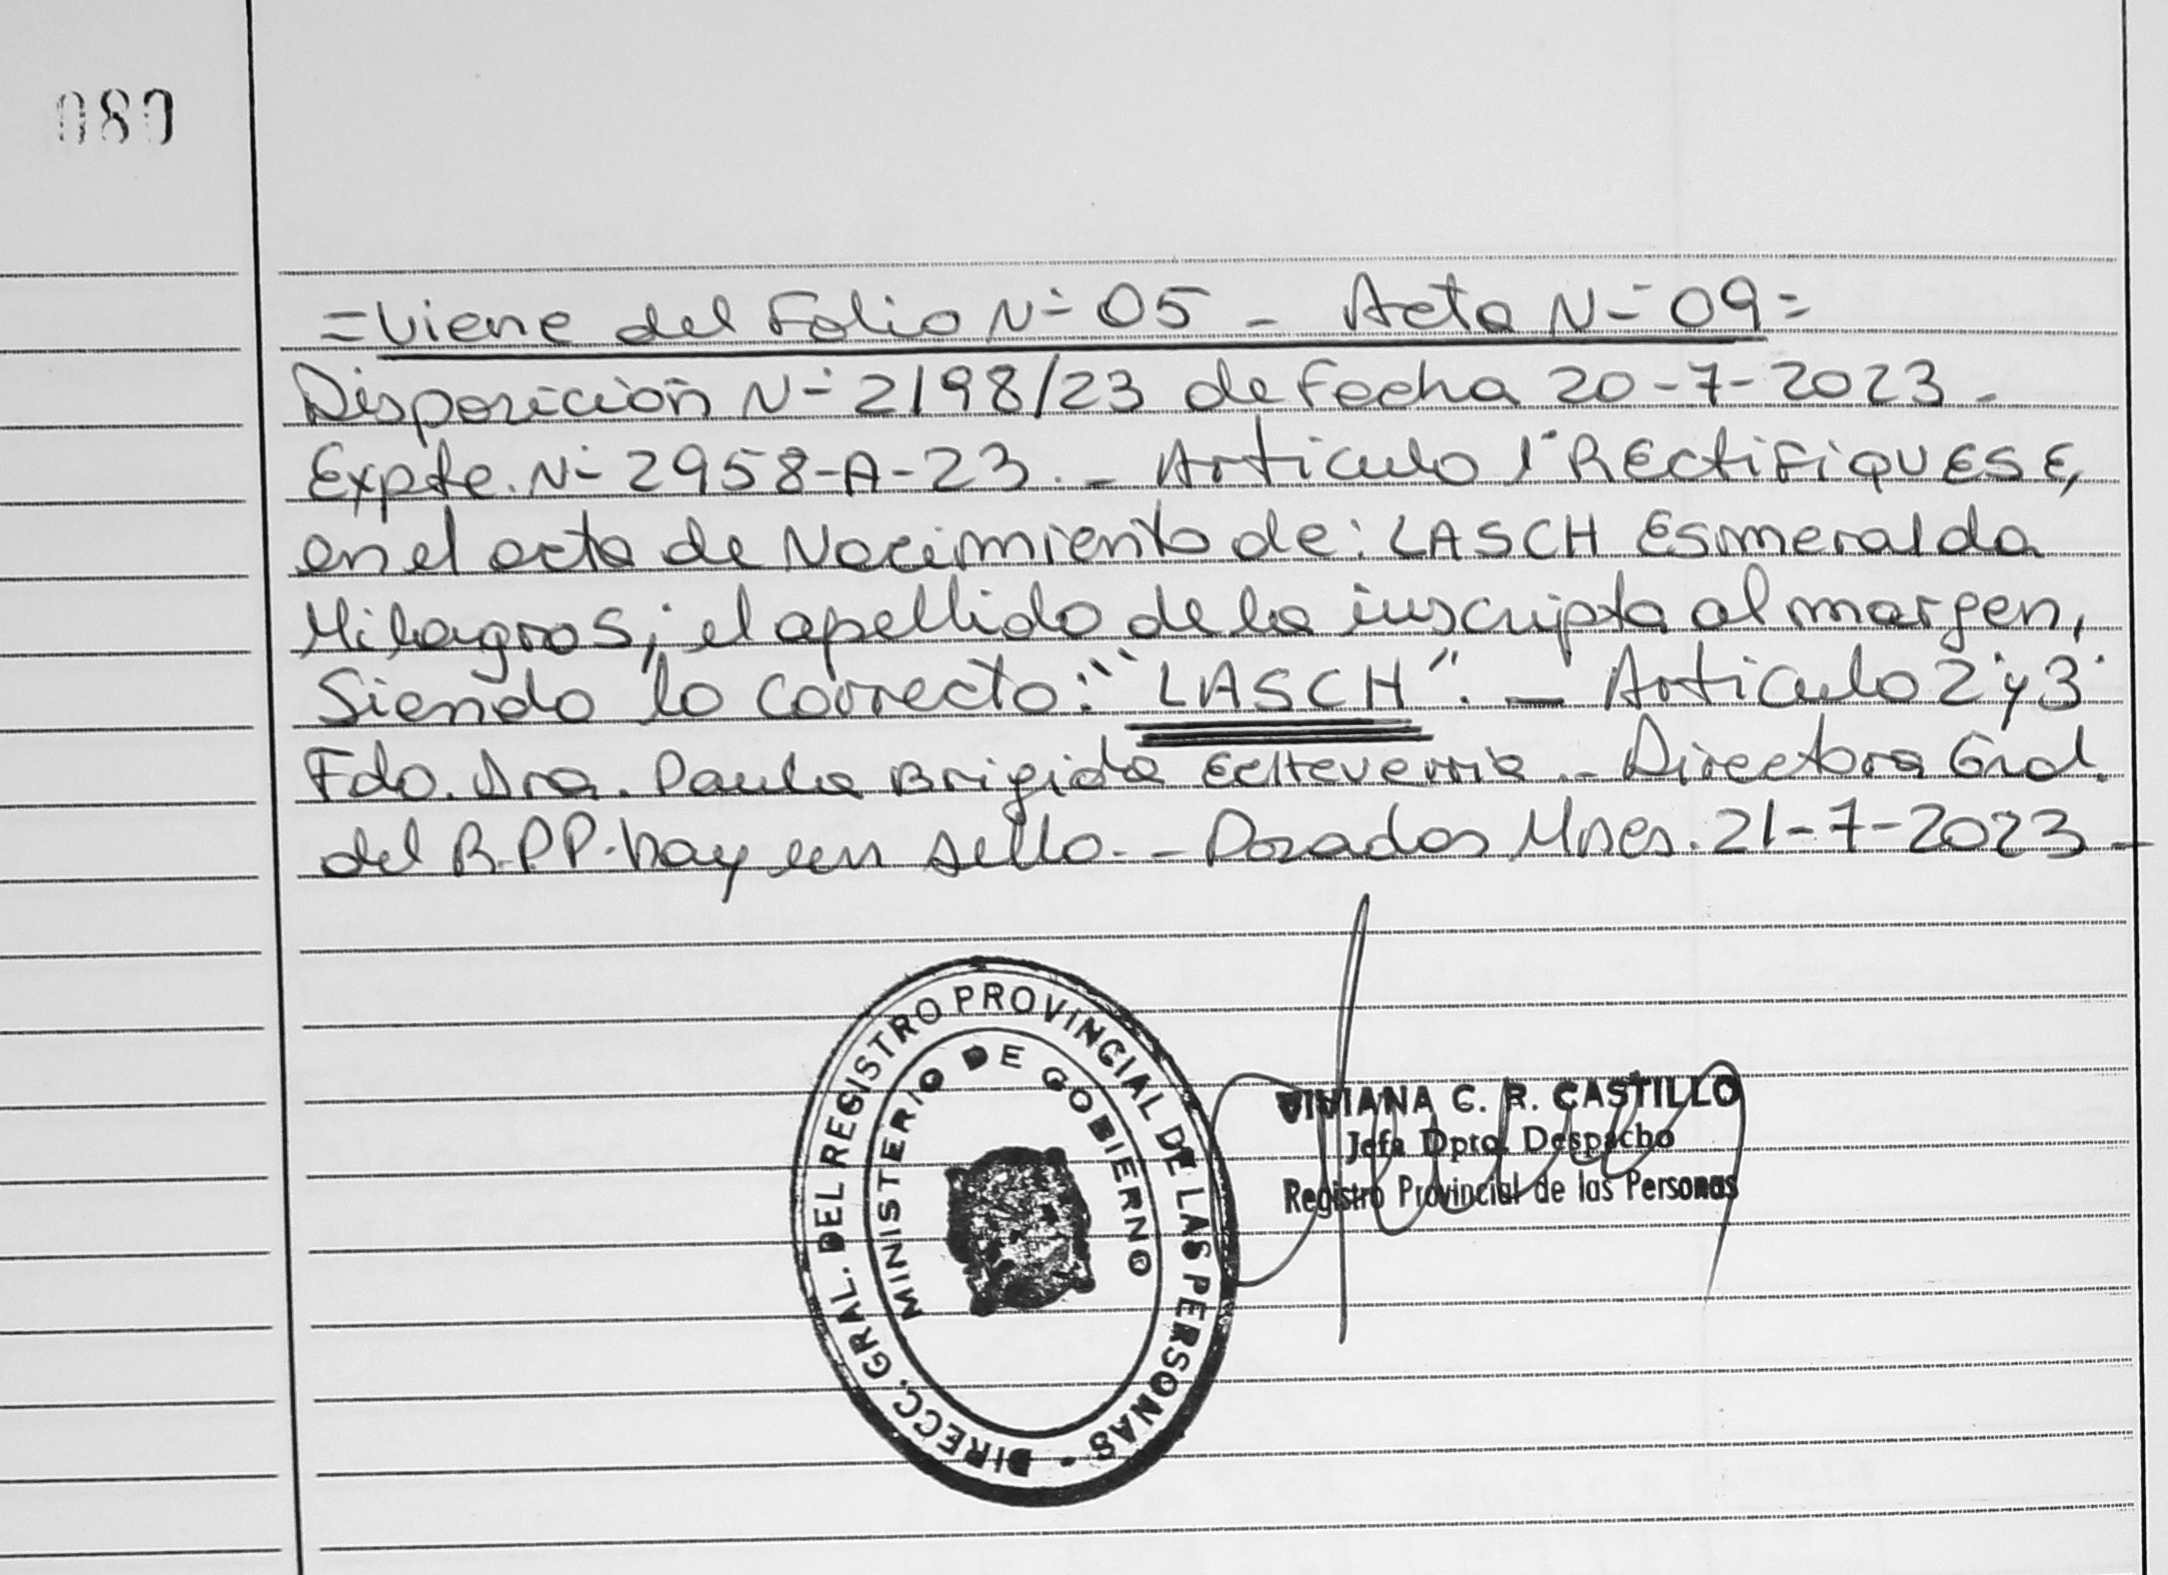 080
=Viene del Folio Nº 05 - Acta Nº 09=
Disposición Nº 2198/23 de fecha 20-7-2023.-
Expte. Nº 2958-A-23.- Articulo 1º RECtiFiQUESE,
en el acta de Nacimiento de: LASCH Esmeralda
Milagros; el apellido de la inscripta al margen,
Siendo lo correcto: "LASCH". - Articulo 2º y 3º
Fdo. Dra. Paula Brigida Echeverria.- Directora Gral.
del R.P.P. hay un sello.- Posadas Mnes. 21-7-2023-
DIRECC. GRAL. DEL REGISTRO PROVINCIAL DE LAS PERSONAS
MINISTERIO DE GOBIERNO
VIVIANA C. R. CASTILLO
Jefa Dpto. Despacho
Registro Provincial de las Personas